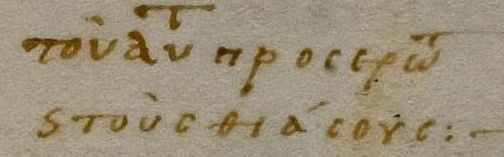 τοὺ αὐτ προσερωτ
ςτοὺς θιάσους:-